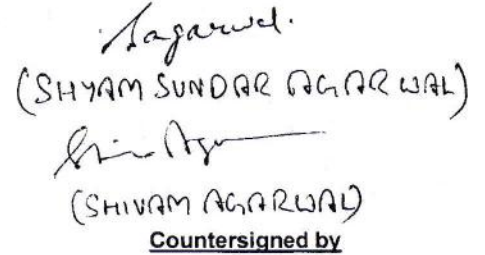 Sagarwal.
(SHYAM SUNDAR AGARWAL)
(SHIVAM AGARWAL)
Countersigned by